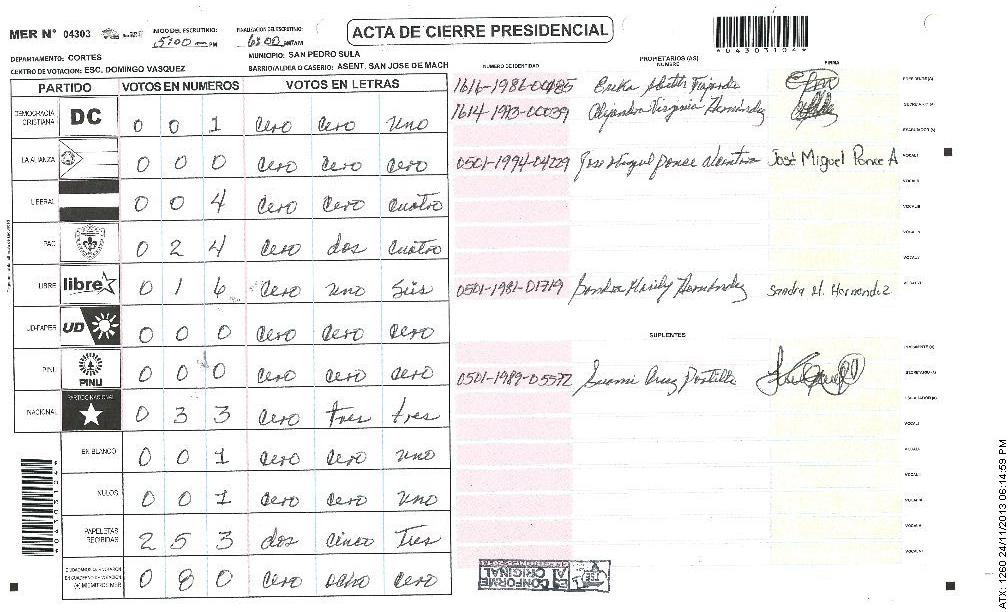 MER N° 04303
INICIO DEL ESCRUTINIO: 5:00 PM
FINALIZACION DEL ESCRUTINIO: 6:00
ACTA DE CIERRE PRESIDENCIAL
04303104
DEPARTAMENTO: CORTES
MUNICIPIO: SAN PEDRO SULA
CENTRO DE VOTACION: ESC. DOMINGO VASQUEZ
BARRIO/ALDEA O CASERIO: ASENT. SAN JOSE DE MACH
PARTIDO VOTOS EN NUMEROS VOTOS EN LETRAS
DEMOCRACIA CRISTIANA DC 0 0 1 cero cero uno
LA ALIANZA 0 0 0 cero cero cero
LIBERAL 0 0 4 cero cero cuatro
PAC 0 2 4 cero dos cuatro
LIBRE libre 0 1 6 cero uno seis
UD-FAPER UD 0 0 0 cero cero cero
PINU PINU 0 0 0 cero cero cero
NACIONAL PARTIDO NACIONAL 0 3 3 cero tres tres
EN BLANCO 0 0 1 cero cero uno
NULOS 0 0 1 cero cero uno
PAPELETAS RECIBIDAS 2 5 3 dos cinco tres
(+) MIEMBROS MER 0 8 0 cero ocho cero
NUMERO DE IDENTIDAD PROPIETARIOS (AS) NOMBRE FIRMA
1616-1986-00485 Erika
1614-1993-00039 Alejandra Virginia Hernández
0501-1994-04229 Jose Miguel Ponce José Miguel Ponce A
0501-1981-01719 Sandra Hernández Sandra M. Hernandez
SUPLENTES
0501-1989-05572 Cruz Portillo
CONFORME
ES AL
ORIGINAL
TSE
ATX: 1260 24/11/2013 06:14:59 PM